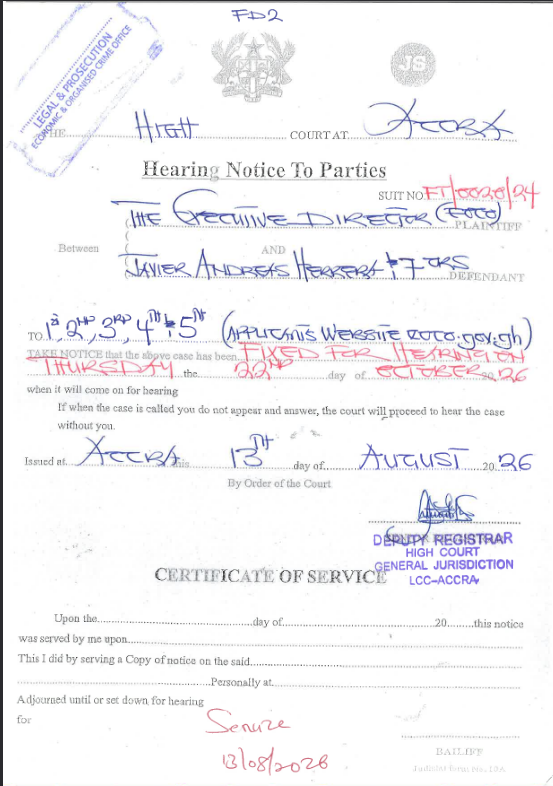 FD2
LEGAL & PROSECUTION
ECONOMIC & ORGANISED CRIME OFFICE
JS
THE HIGH COURT AT ACCRA
Hearing Notice To Parties
SUIT NO. FT/0020/24
THE EXECUTIVE DIRECTOR (EOCO)
PLAINTIFF
Between AND
JAVIER ANDREAS HERRERA & 7 ORS
DEFENDANT
TO 1ST, 2ND, 3RD, 4TH & 5TH (APPLICANT'S WEBSITE EOCO.gov.gh)
TAKE NOTICE that the above case has been FIXED FOR HEARING ON
THURSDAY the 22ND day of OCTOBER 2026
when it will come on for hearing
If when the case is called you do not appear and answer, the court will proceed to hear the case
without you.
Issued at ACCRA this 13TH day of AUGUST 2026
By Order of the Court
DEPUTY REGISTRAR
HIGH COURT
GENERAL JURISDICTION
LCC-ACCRA
CERTIFICATE OF SERVICE
Upon the day of 20 this notice
was served by me upon
This I did by serving a Copy of notice on the said
Personally at
Adjourned until or set down for hearing
for
Service
13/08/2026
BAILIFF
Judicial Form No. 19A